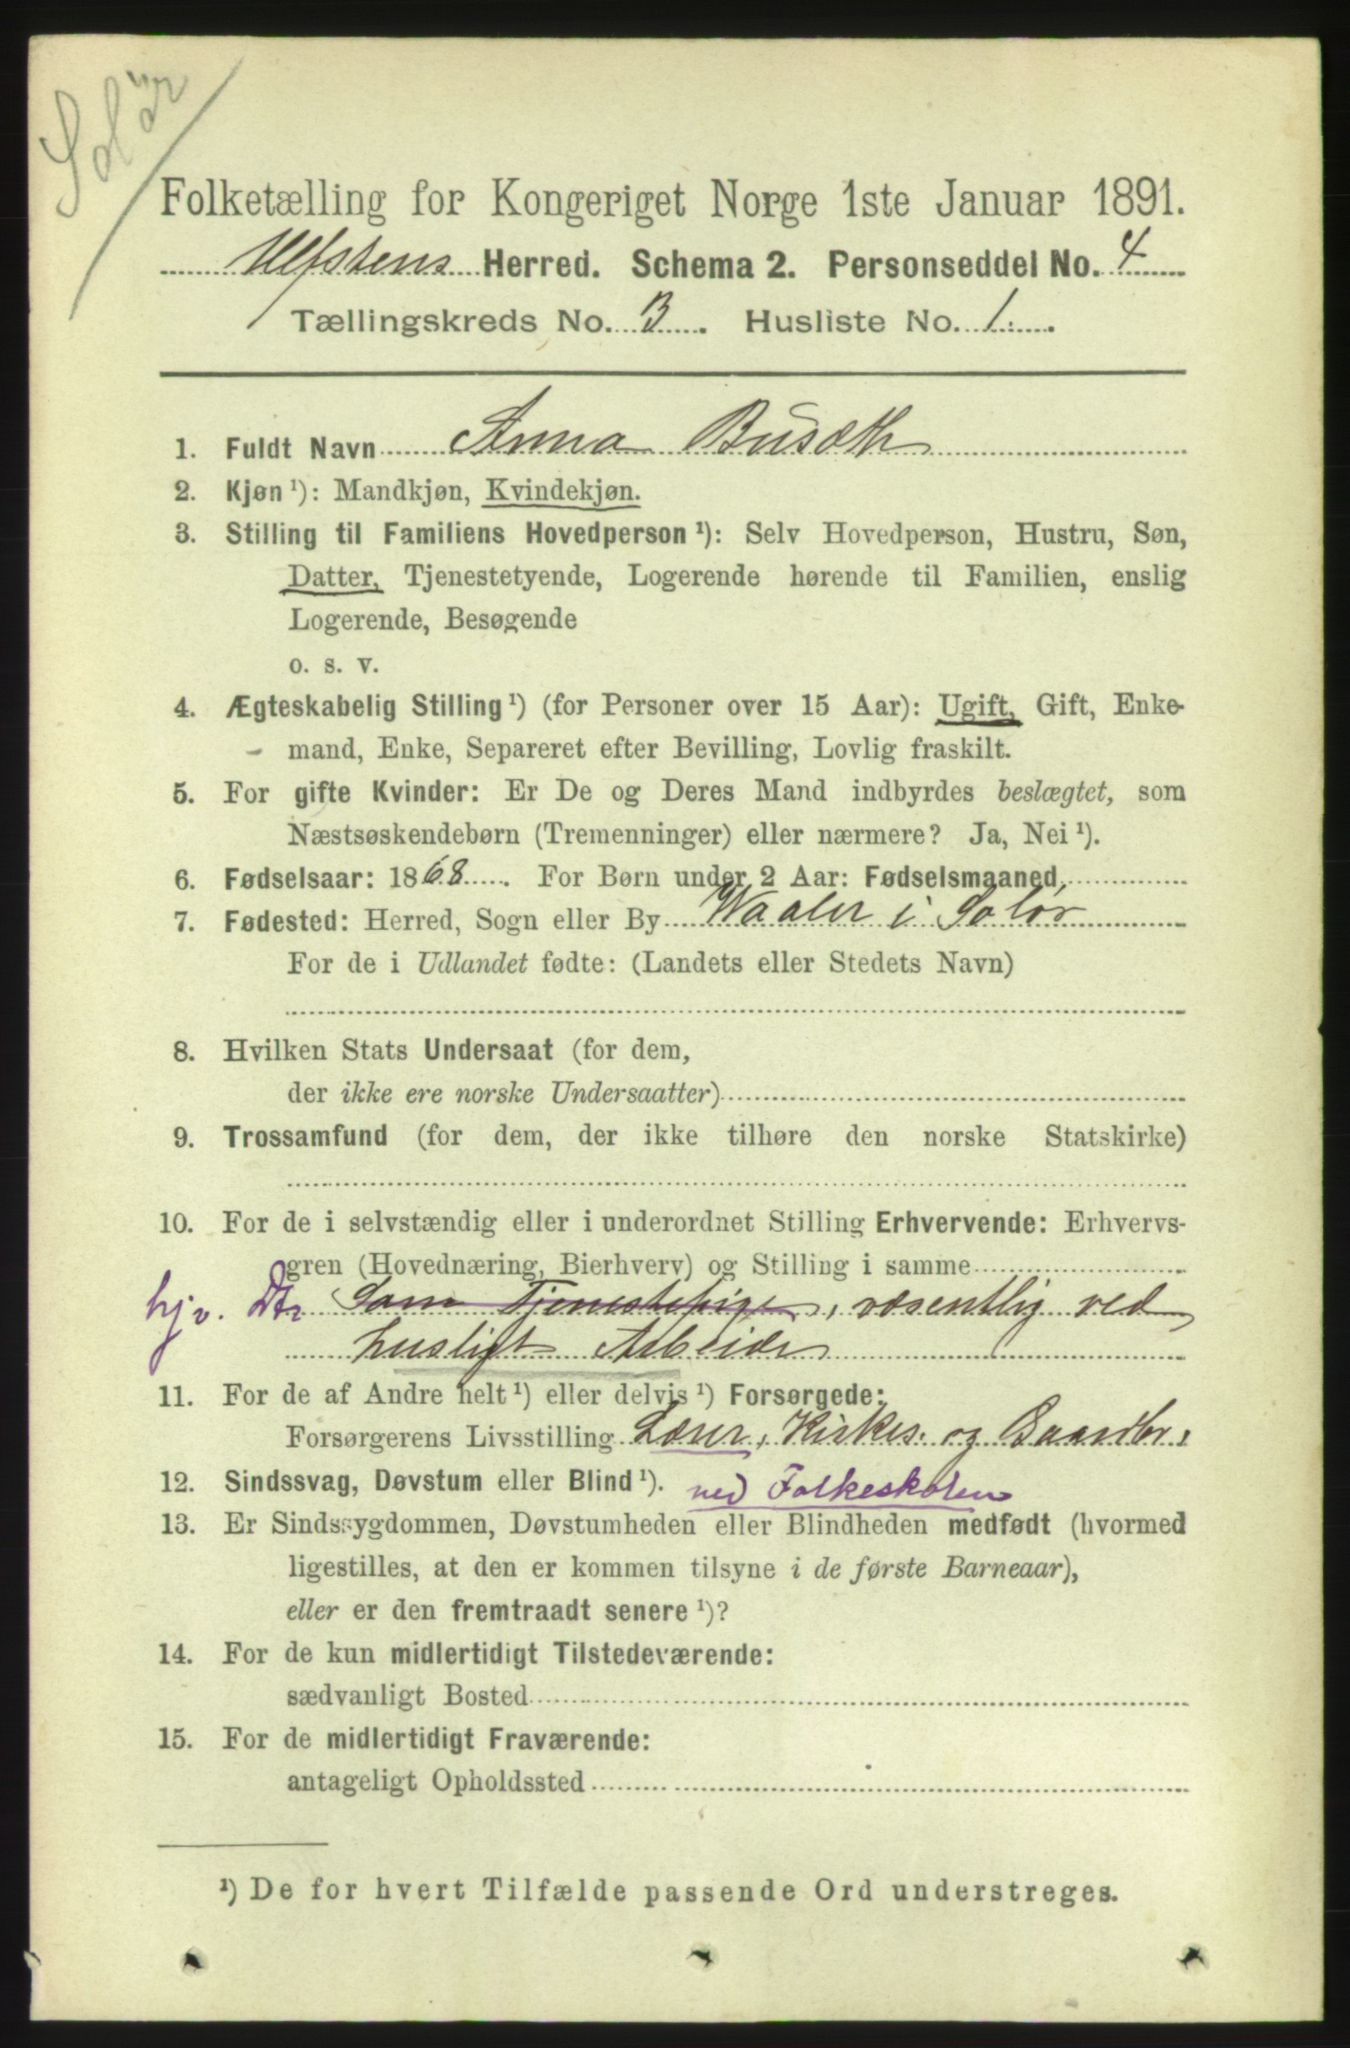 Solør
Folketælling for Kongeriget Norge 1ste Januar 1891.
Ulfstens Herred. Schema 2. Personseddel No. 4
Tællingskreds No. 3. Husliste No. 1.
1. Fuldt Navn Anna Busæth
2. Kjøn ¹): Mandkjøn, Kvindekjøn.
3. Stilling til Familiens Hovedperson ¹): Selv Hovedperson, Hustru, Søn,
Datter, Tjenestetyende, Logerende hørende til Familien, enslig
Logerende, Besøgende
o. s. v.
4. Ægteskabelig Stilling ¹) (for Personer over 15 Aar): Ugift, Gift, Enke-
mand, Enke, Separeret efter Bevilling, Lovlig fraskilt.
5. For gifte Kvinder: Er De og Deres Mand indbyrdes beslægtet, som
Næstsøskendebørn (Tremenninger) eller nærmere? Ja, Nei ¹).
6. Fødselsaar: 1868. For Børn under 2 Aar: Fødselsmaaned
7. Fødested: Herred, Sogn eller By Waaler i Solør
For de i Udlandet fødte: (Landets eller Stedets Navn)
8. Hvilken Stats Undersaat (for dem,
der ikke ere norske Undersaatter)
9. Trossamfund (for dem, der ikke tilhøre den norske Statskirke)
10. For de i selvstændig eller i underordnet Stilling Erhvervende: Erhvervs-
gren (Hovednæring, Bierhverv) og Stilling i samme
hjv. Dtr Som Tjenestepige, væsentlig ved
husligt Arbeide
11. For de af Andre helt ¹) eller delvis ¹) Forsørgede:
Forsørgerens Livsstilling Lærer, Kirkes. og Gaardbr.
12. Sindssvag, Døvstum eller Blind ¹). ved Folkeskolen
13. Er Sindssygdommen, Døvstumheden eller Blindheden medfødt (hvormed
ligestilles, at den er kommen tilsyne i de første Barneaar),
eller er den fremtraadt senere ¹)?
14. For de kun midlertidigt Tilstedeværende:
sædvanligt Bosted
15. For de midlertidigt Fraværende:
antageligt Opholdssted
¹) De for hvert Tilfælde passende Ord understreges.